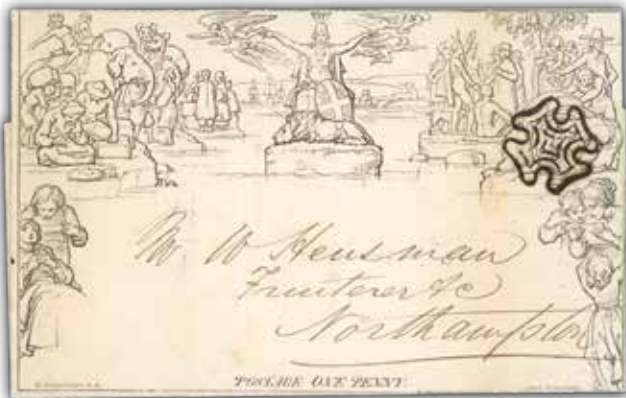 Mr W Hensman
Fruiterer &c
Northampton
POSTAGE ONE PENNY.